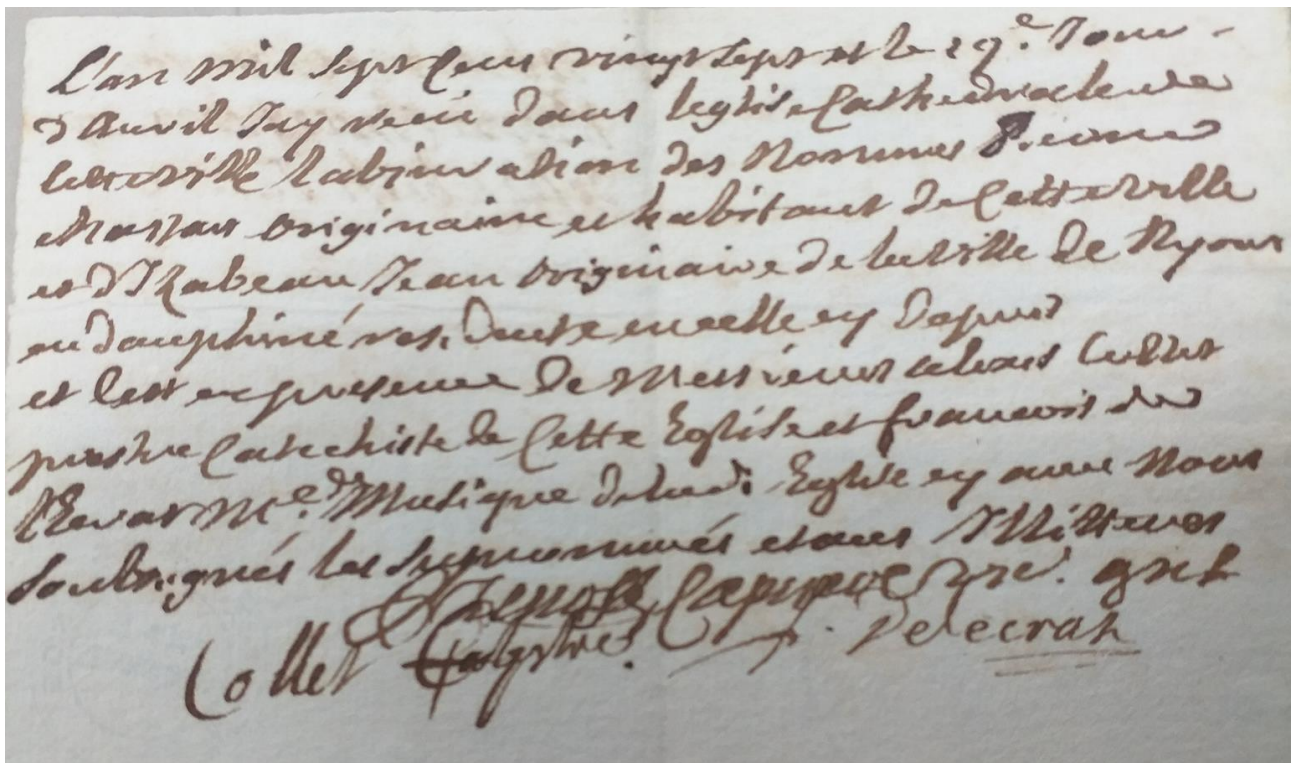 L'an mil sept cens vingt sept et le 29e. Jour
d'Auril Jay receu dans leglise Cathedrale de
cette ville labjuration des Nommes Pierre
originaire et habitant de Cette ville
et d'Izabeau Jean originaire de la ville de Nyons
en dauphiné residente en celle cy depuis
et cest en presence de Messieurs Collet
prestre Catechiste de Cette Eglise et francois de
Me. de Musique de lad. Eglise cy avec Nous
Soubsignés les susnommés
Capucin
Collet ptre. Delecrat